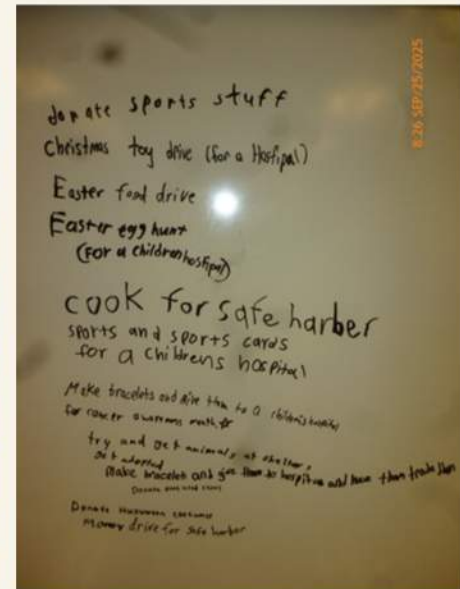 donate sports stuff
Christmas toy drive (for a Hosfipal)
Easter food drive
Easter egg hunt
(For a children hosfipal)
cook for safe harber
sports and sports cards
for a childrens hospital
Make bracelets and give them to a childrens hospital
for cancer awarness month
try and get animals at shelters
get adopted
Make bracelets and give them to hospital and have them trade them
Donate
Donate Halloween costumes
Money drive for safe harber
8:26 SEP/25/2025